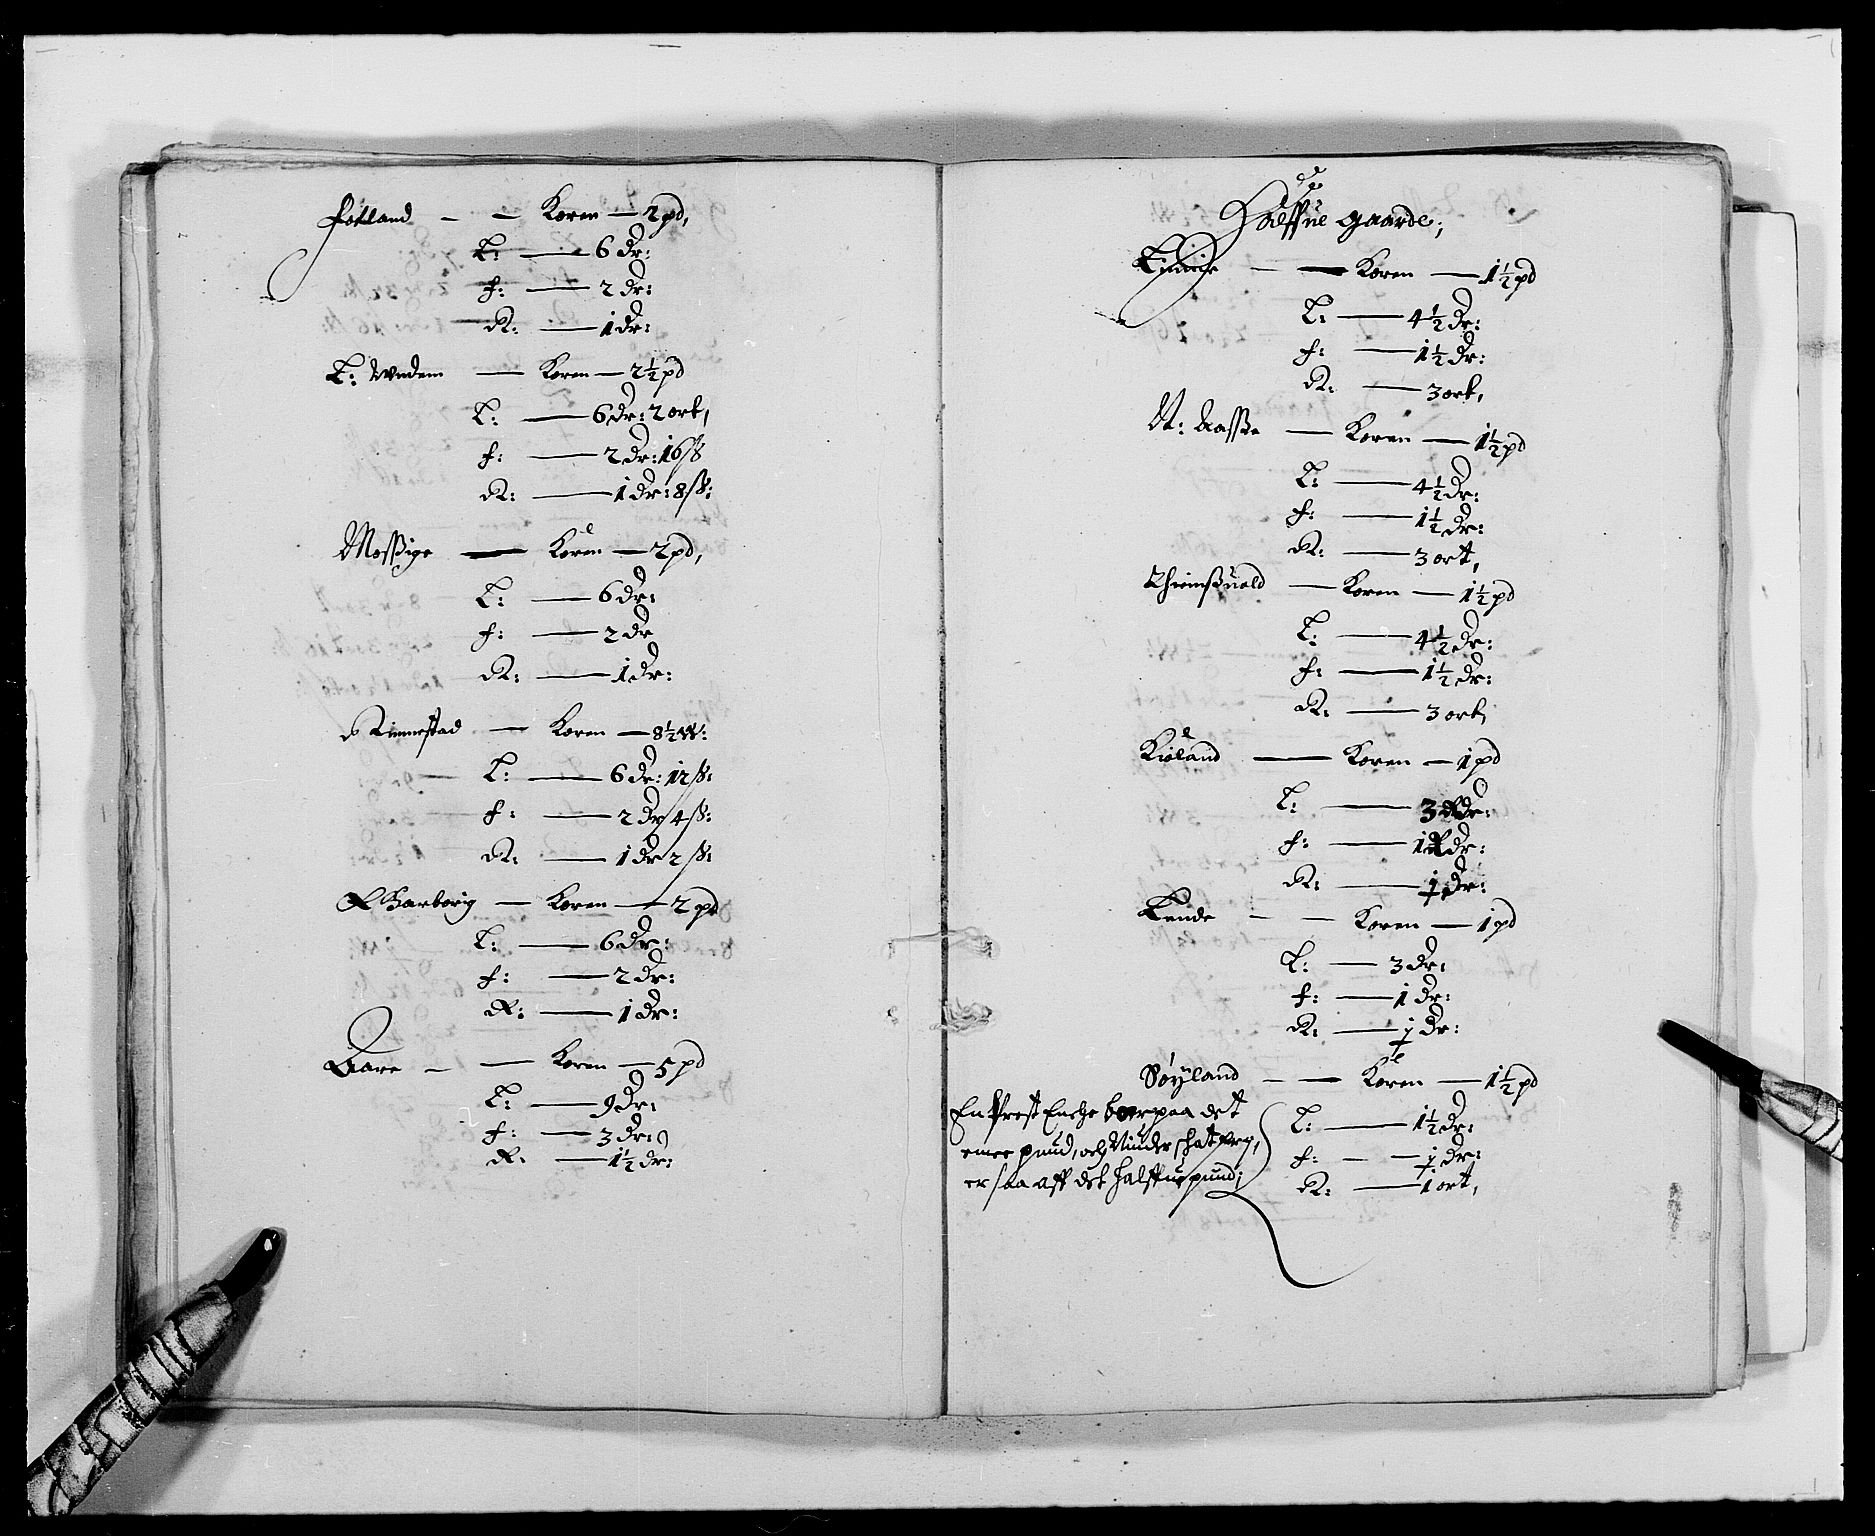 Fotland — — Koren — 2 pd,
L: — 6 dr:
f: — 2 dr:
R: — 1 dr:
L: Undem — Koren — 2½ pd
L: — 6 dr: 2 ort,
f: — 2 dr: 16 ß
R: — 1 dr: 8 ß:
Moßige — Koren — 2 pd,
L: — 6 dr:
f: — 2 dr
R: — 1 dr:
Rimestad — Koren — 8½ W:
L: — 6 dr: 12 ß:
f: — 2 dr 4 ß:
R: — 1 dr 2 ß:
Garborig — Koren — 2 pd
L: — 6 dr:
f: — 2 dr:
R: — 1 dr:
Aare — — Koren — 5 pd
L: — 9 dr:
f: — 3 dr:
R: — 1½ dr:
Halffue gaarde;
— — Koren — 1½ pd
L: — 4½ dr:
f: — 1½ dr:
R: — 3 ort,
— Koren — 1½ pd
L: — 4½ dr:
f: — 1½ dr:
R: — 3 ort,
— Koren — 1½ pd
L: — 4½ dr:
f: — 1½ dr:
R: — 3 ort,
Kioland — Koren — 1 pd
L: — 3 dr:
f: — 1 dr:
R: — ½ dr:
Lende — — Koren — 1 pd
L: — 3 dr:
f: — 1 dr:
R: — ½ dr:
Søyland — — Koren — 1½ pd
En Prest Enche boer paa det
L: — 1½ dr:
eene pund, och Niuder schat frj,
f: — — ½ dr:
er saa aff det halffue pund;
R: — 1 ort,